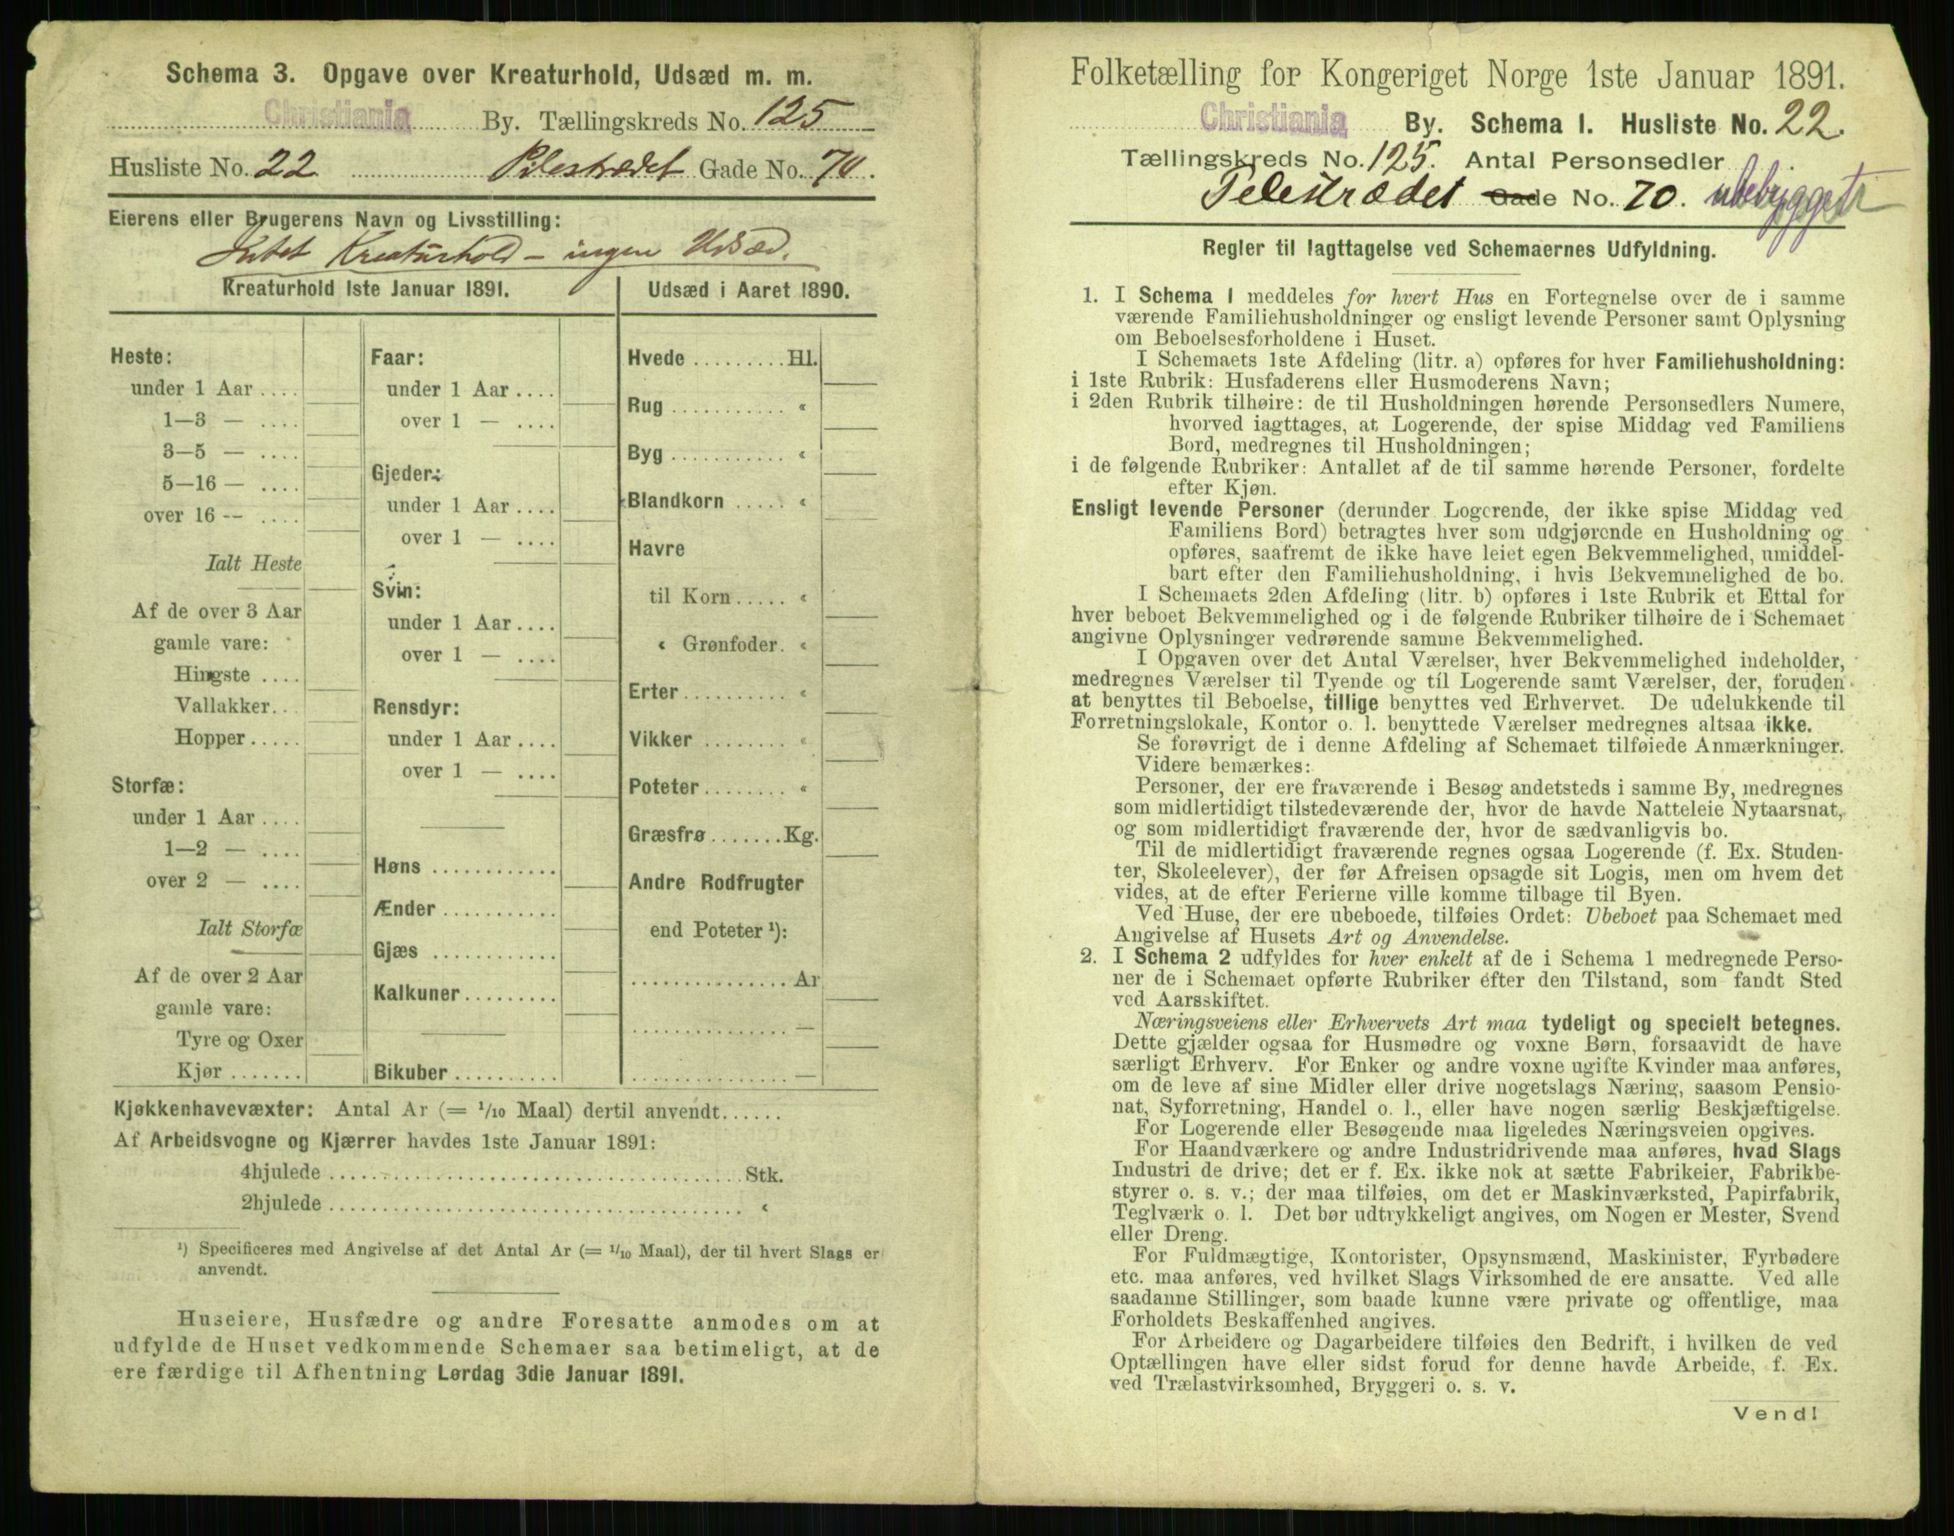 Schema 3. Opgave over Kreaturhold, Udsæd m. m.
Christiania By. Tællingskreds No. 125
Husliste No. 22 Pilestrædet Gade No. 70.
Eierens eller Brugerens Navn og Livsstilling:
Intet Kreaturhold – ingen Udsæd.
Kreaturhold 1ste Januar 1891.
Heste:
under 1 Aar ....
1—3 — ....
3—5 — ....
5—16 — ....
over 16 — ....
Ialt Heste
Af de over 3 Aar
gamle vare:
Hingste ....
Vallakker...
Hopper.....
Storfæ:
under 1 Aar ....
1—2 — ....
over 2 — ....
Ialt Storfæ
Af de over 2 Aar
gamle vare:
Tyre og Oxer
Kjør .......
Faar:
under 1 Aar ....
over 1 — ....
Gjeder:
under 1 Aar ....
over 1 — ....
Svin:
under 1 Aar ....
over 1 — ....
Rensdyr:
under 1 Aar ....
over 1 — ....
Høns ............
Ænder ...........
Gjæs ............
Kalkuner.........
Bikuber ..........
Udsæd i Aaret 1890.
Hvede .........Hl.
Rug ........... «
Byg ........... «
Blandkorn ..... «
Havre
til Korn..... «
« Grønfoder. «
Erter.......... «
Vikker ........ «
Poteter........ «
Græsfrø .......Kg.
Andre Rodfrugter
end Poteter ¹):
...............Ar
...............—
...............—
Kjøkkenhavevæxter: Antal Ar (= 1/10 Maal) dertil anvendt......
Af Arbeidsvogne og Kjærrer havdes 1ste Januar 1891:
4hjulede ........................................Stk.
2hjulede ........................................ «
¹) Specificeres med Angivelse af det Antal Ar (= 1/10 Maal), der til hvert Slags er
anvendt.
Huseiere, Husfædre og andre Foresatte anmodes om at
udfylde de Huset vedkommende Schemaer saa betimeligt, at de
ere færdige til Afhentning Lørdag 3die Januar 1891.
Folketælling for Kongeriget Norge 1ste Januar 1891.
Christiania By. Schema 1. Husliste No. 22.
Tællingskreds No. 125. Antal Personsedler .
Pelestrædet Gade No. 70. ubebygget
Regler til Iagttagelse ved Schemaernes Udfyldning.
1. I Schema 1 meddeles for hvert Hus en Fortegnelse over de i samme
værende Familiehusholdninger og ensligt levende Personer samt Oplysning
om Beboelsesforholdene i Huset.
I Schemaets 1ste Afdeling (litr. a) opføres for hver Familiehusholdning:
i 1ste Rubrik: Husfaderens eller Husmoderens Navn;
i 2den Rubrik tilhøire: de til Husholdningen hørende Personsedlers Numere,
hvorved iagttages, at Logerende, der spise Middag ved Familiens
Bord, medregnes til Husholdningen;
i de følgende Rubriker: Antallet af de til samme hørende Personer, fordelte
efter Kjøn.
Ensligt levende Personer (derunder Logerende, der ikke spise Middag ved
Familiens Bord) betragtes hver som udgjørende en Husholdning og
opføres, saafremt de ikke have leiet egen Bekvemmelighed, umiddel-
bart efter den Familiehusholdning, i hvis Bekvemmelighed de bo.
I Schemaets 2den Afdeling (litr. b) opføres i 1ste Rubrik et Ettal for
hver beboet Bekvemmelighed og i de følgende Rubriker tilhøire de i Schemaet
angivne Oplysninger vedrørende samme Bekvemmelighed.
I Opgaven over det Antal Værelser, hver Bekvemmelighed indeholder,
medregnes Værelser til Tyende og til Logerende samt Værelser, der, foruden
at benyttes til Beboelse, tillige benyttes ved Erhvervet. De udelukkende til
Forretningslokale, Kontor o. l. benyttede Værelser medregnes altsaa ikke.
Se forøvrigt de i denne Afdeling af Schemaet tilføiede Anmærkninger.
Videre bemærkes:
Personer, der ere fraværende i Besøg andetsteds i samme By, medregnes
som midlertidigt tilstedeværende der, hvor de havde Natteleie Nytaarsnat,
og som midlertidigt fraværende der, hvor de sædvanligvis bo.
Til de midlertidigt fraværende regnes ogsaa Logerende (f. Ex. Studen-
ter, Skoleelever), der før Afreisen opsagde sit Logis, men om hvem det
vides, at de efter Ferierne ville komme tilbage til Byen.
Ved Huse, der ere ubeboede, tilføies Ordet: Ubeboet paa Schemaet med
Angivelse af Husets Art og Anvendelse.
2. I Schema 2 udfyldes for hver enkelt af de i Schema 1 medregnede Perso-
ner de i Schemaet opførte Rubriker efter den Tilstand, som fandt Sted
ved Aarsskiftet.
Næringsveiens eller Erhvervets Art maa tydeligt og specielt betegnes.
Dette gjælder ogsaa for Husmødre og voxne Børn, forsaavidt de have
særligt Erhverv. For Enker og andre voxne ugifte Kvinder maa anføres,
om de leve af sine Midler eller drive nogetslags Næring, saasom Pensio-
nat, Syforretning, Handel o. l., eller have nogen særlig Beskjæftigelse.
For Logerende eller Besøgende maa ligeledes Næringsveien opgives.
For Haandværkere og andre Industridrivende maa anføres, hvad Slags
Industri de drive; det er f. Ex. ikke nok at sætte Fabrikeier, Fabrikbe-
styrer o. s. v.; der maa tilføies, om det er Maskinværksted, Papirfabrik,
Teglværk o. l. Det bør udtrykkeligt angives, om Nogen er Mester, Svend
eller Dreng.
For Fuldmægtige, Kontorister, Opsynsmænd, Maskinister, Fyrbødere
etc. maa anføres, ved hvilket Slags Virksomhed de ere ansatte. Ved alle
saadanne Stillinger, som baade kunne være private og offentlige, maa
Forholdets Beskaffenhed angives.
For Arbeidere og Dagarbeidere tilføies den Bedrift, i hvilken de ved
Optællingen have eller sidst forud for denne havde Arbeide, f. Ex.
ved Trælastvirksomhed, Bryggeri o. s. v.
Vend!